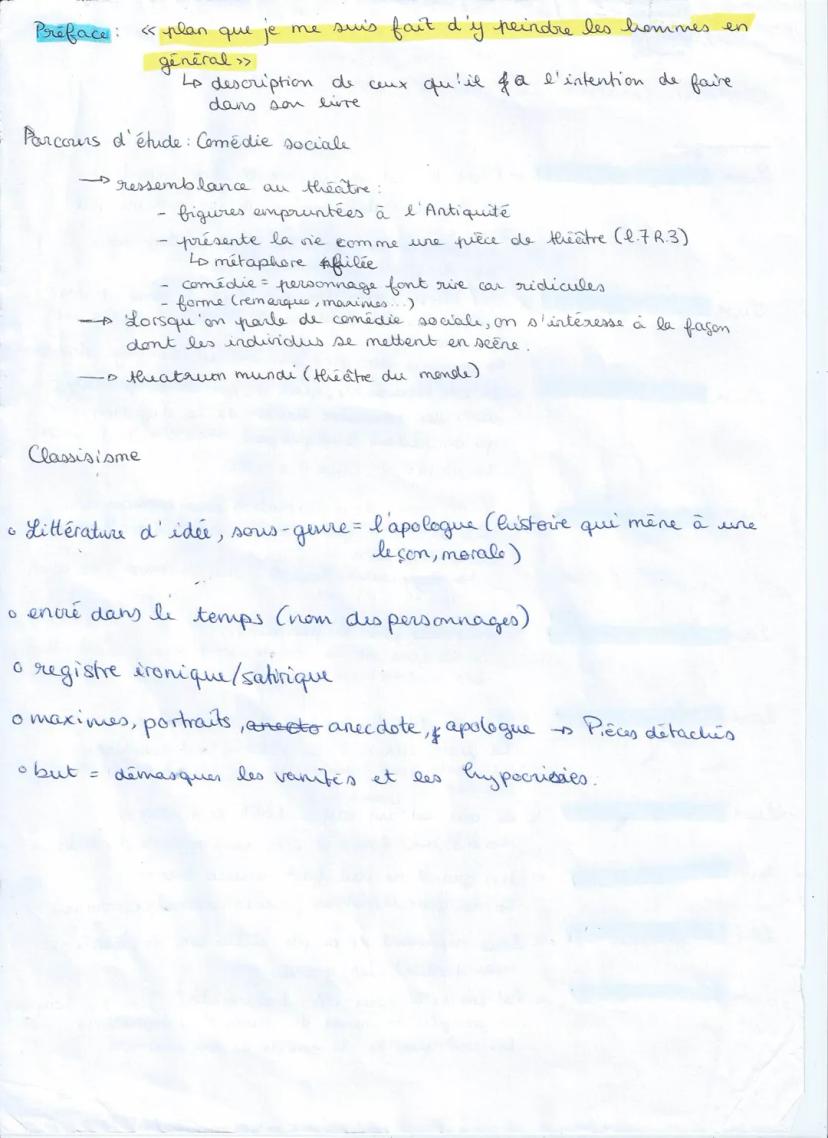 Préface : « plan que je me suis fait d'y peindre les hommes en
général »
↳ description de ceux qu'il a l'intention de faire
dans son livre
Parcours d'étude : Comédie sociale
→ ressemblance au théâtre :
- figures empruntées à l'Antiquité
- présente la vie comme une pièce de théâtre (l.7 R.3)
↳ métaphore filée
- comédie = personnage font rire car ridicules
- forme (remarque, maximes...)
→ Lorsqu'on parle de comédie sociale, on s'intéresse à la façon
dont les individus se mettent en scène.
→ theatrum mundi (théâtre du monde)
Classisisme
o Littérature d'idée, sous-genre = l'apologue (histoire qui mène à une
leçon, morale)
o encré dans le temps (nom des personnages)
o registre ironique/satirique
o maximes, portraits, anecdote, apologue → Pièces détachés
o but = démasques les vanités et les hypocrisies.